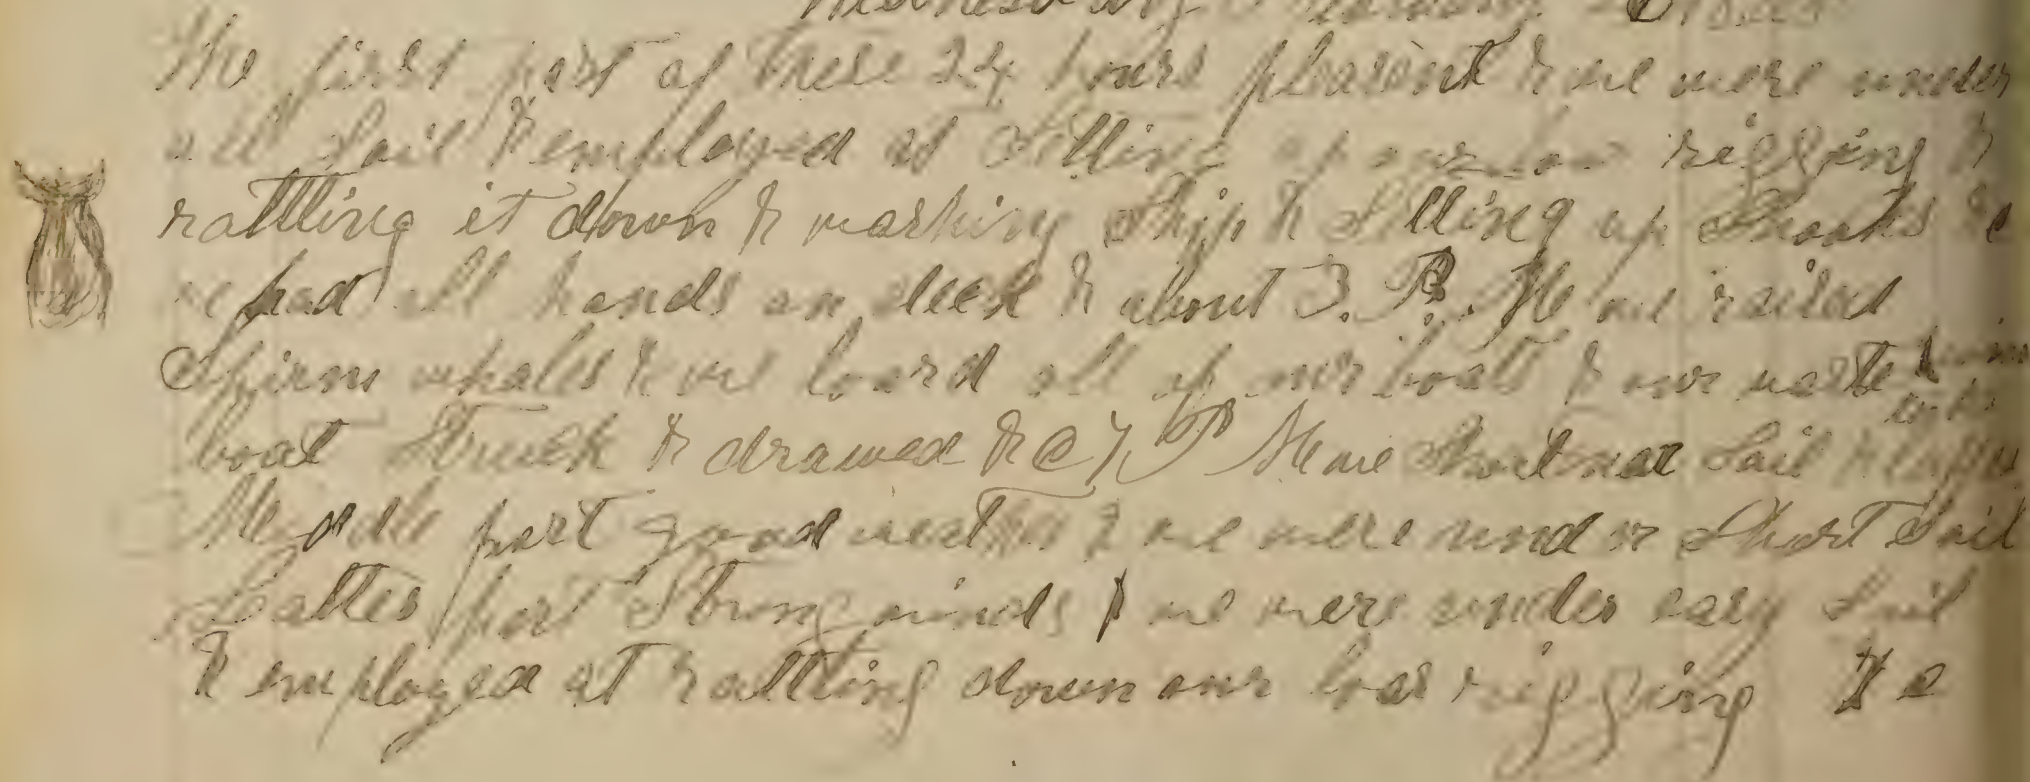 The first part of these 24 hours pleasent & we were under
all Sail & employed at Setting up our low rigging &
rattling it down & washing Ship & Setting up Shooks &c
we had all hands on deck & about 3. P. M we raised
Spirm whales & we loard all of our boats & our waste
boat Struck & drawed & c 7 P M we Shortnat Sail &
Midle part good weather & we were under Short Sail
Latter part Strong winds & we were under easy Sail
& employed at rattling down our loar rigging &c